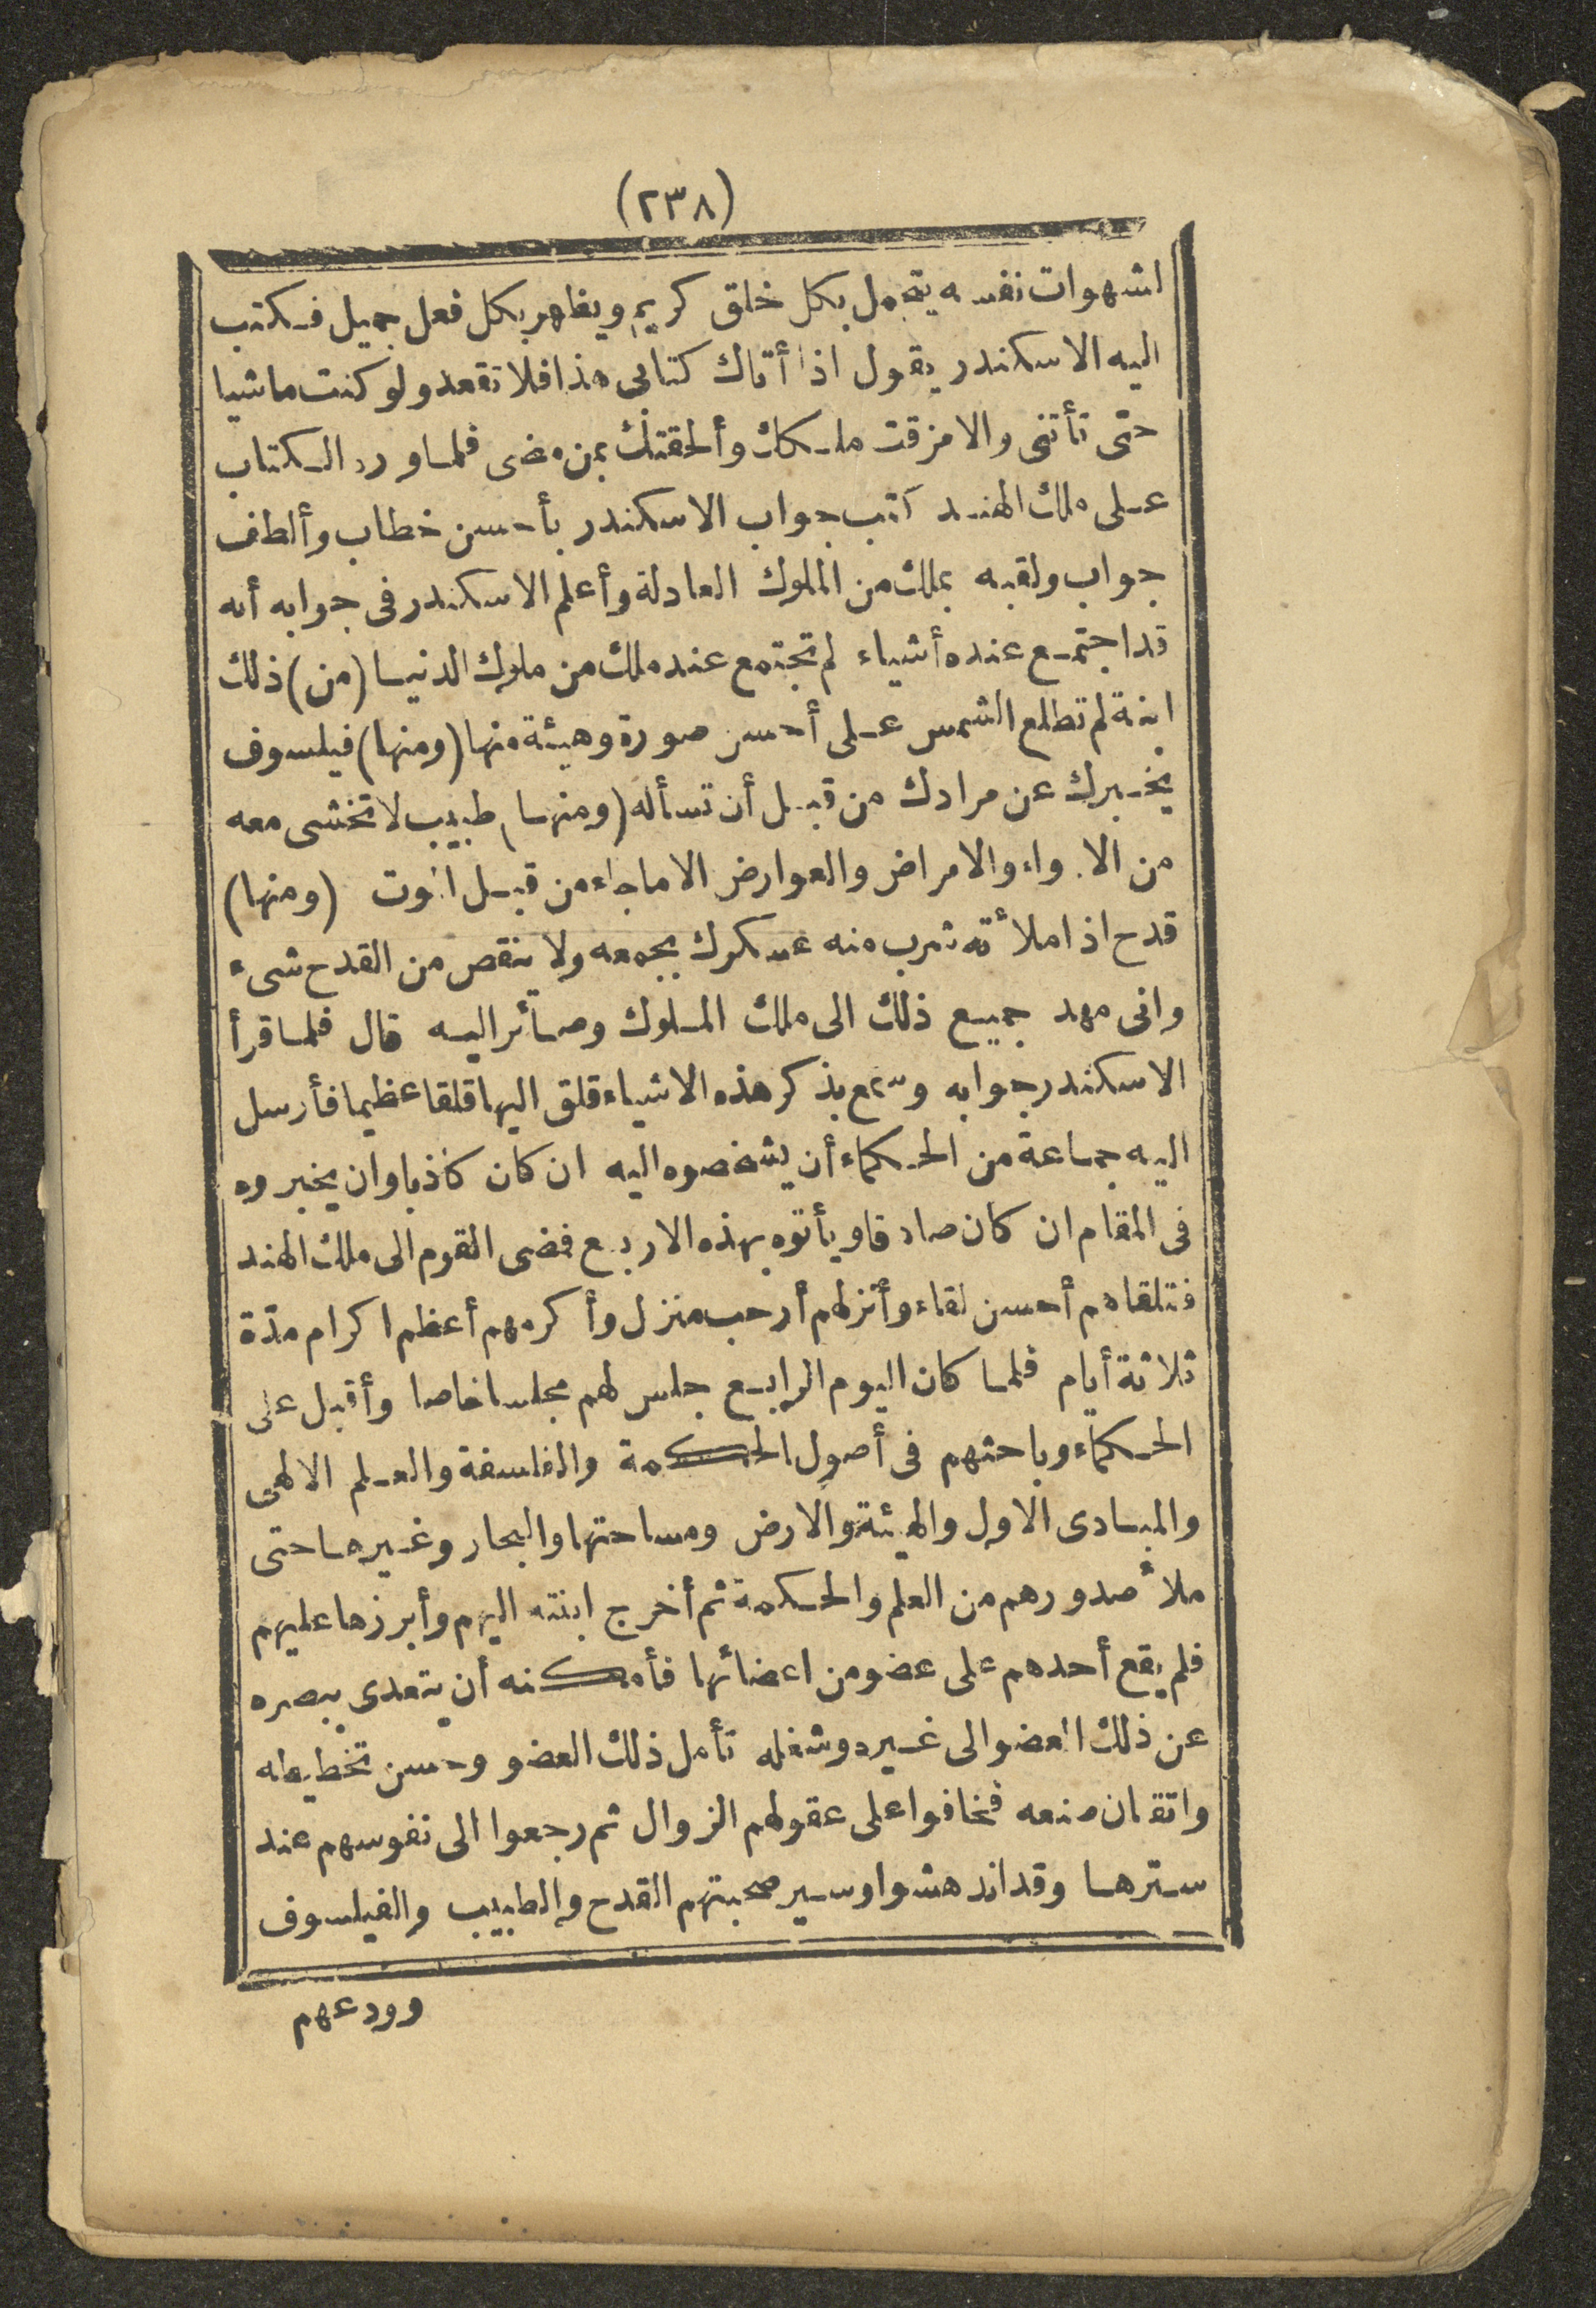 (٢٣٨)
لشهوات نفسه يتجمل بكل خلق كريم ويظهر بكل فعل جميل فكتب
اليه الاسكندر يقول اذا أتاك كتابي هذا فلا تقعد ولو كنت ماشيا
حتى تأتنى والا مزقت ملكك وألحقتك بمن مضى فلما ورد الكتاب
على ملك الهند كتب جواب الاسكندر بأحسن خطاب وألطف
جواب ولقبه بملك من الملوك العادلة وأعلم الاسكندر فى جوابه أنه
قد اجتمع عنده أشياء لم تجتمع عند ملك من ملوك الدنيا (من) ذلك
ابنة لم تطلع الشمس على أحسن صورة وهيئة منها (ومنها) فيلسوف
يخبرك عن مرادك من قبل أن تسأله (ومنها) طبيب لا تخشى معه
من الادواء والامراض والعوارض الا ما جاء من قبل الموت (ومنها)
قدح اذا ملأته شرب منه عسكرك بجمعه ولا ينقص من القدح شىء
وانى مهد جميع ذلك الى ملك الملوك وصائر اليه قال فلما قرأ
الاسكندر جوابه وسمع بذكر هذه الاشياء قلق اليها قلقا عظيما فأرسل
اليه جماعة من الحكماء أن يشخصوه اليه ان كان كاذبا وان يخبروه
فى المقام ان كان صادقا ويأتوه بهذه الاربع فمضى القوم الى ملك الهند
فتلقاهم أحسن لقاء وأنزلهم أرحب منزل وأكرمهم أعظم اكرام مدّة
ثلاثة أيام فلما كان اليوم الرابع جلس لهم مجلسا خاصا وأقبل على
الحكماء وباحثهم فى أصول الحكمة والفلسفة والعلم الالهى
والمبادى الاول والهيئة والارض ومساحتها والبحار وغيرها حتى
ملأ صدورهم من العلم والحكمة ثم أخرج ابنته اليهم وأبرزها عليهم
فلم يقع أحدهم على عضو من اعضائها فأمكنه أن يتعدى ببصره
عن ذلك العضو الى غيره وشغله تأمل ذلك العضو وحسن تخطيطه
واتقان صنعه فخافوا على عقولهم الزوال ثم رجعوا الى نفوسهم عند
سترها وقد اندهشوا وسير صحبتهم القدح والطبيب والفيلسوف
وودعهم